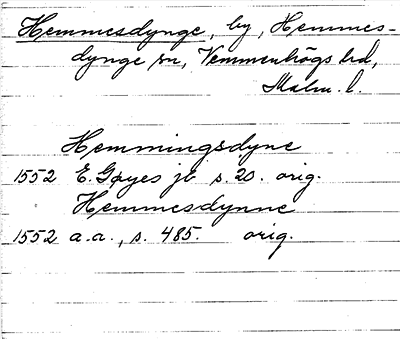 Hemmesdynge, by, Hemmes-
dynge sn, Vemmenhögs hd,
Malm. l.
Hemmingsdyne
1552 E. Gøyes jb s. 20. orig.
Hemmesdynne
1552 a.a., s. 485. orig.